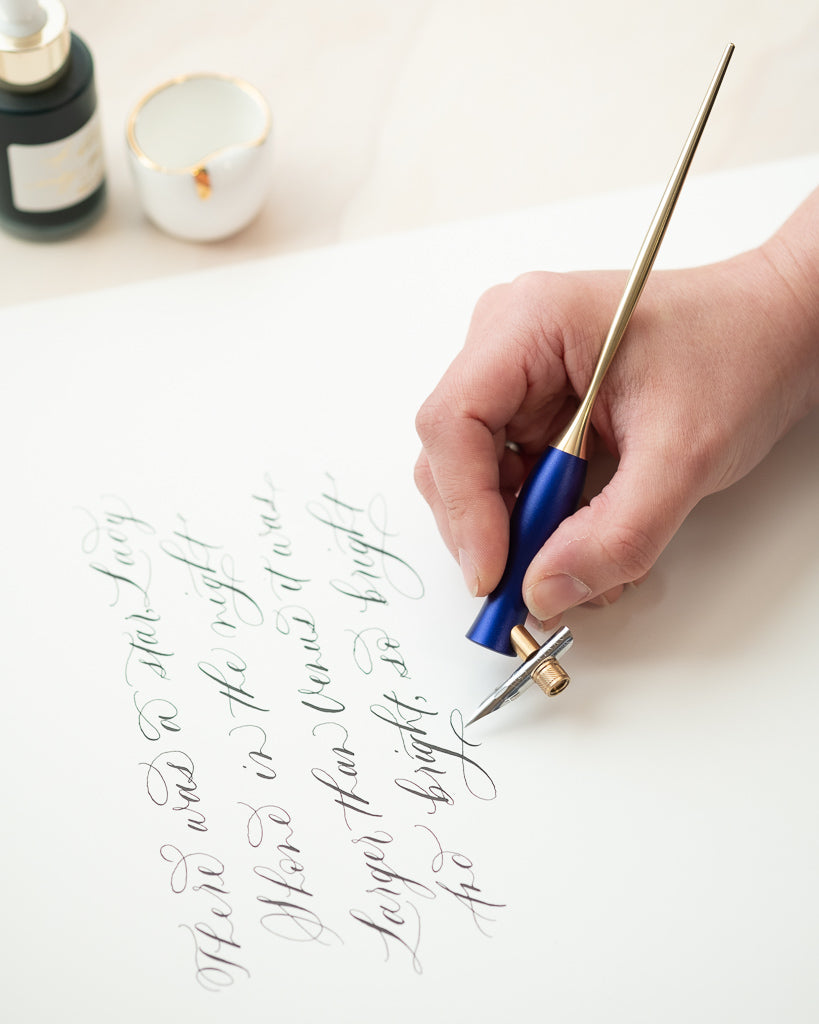 There was a star, Lady
Shone in the night
Larger than Venus it was
And bright, so bright